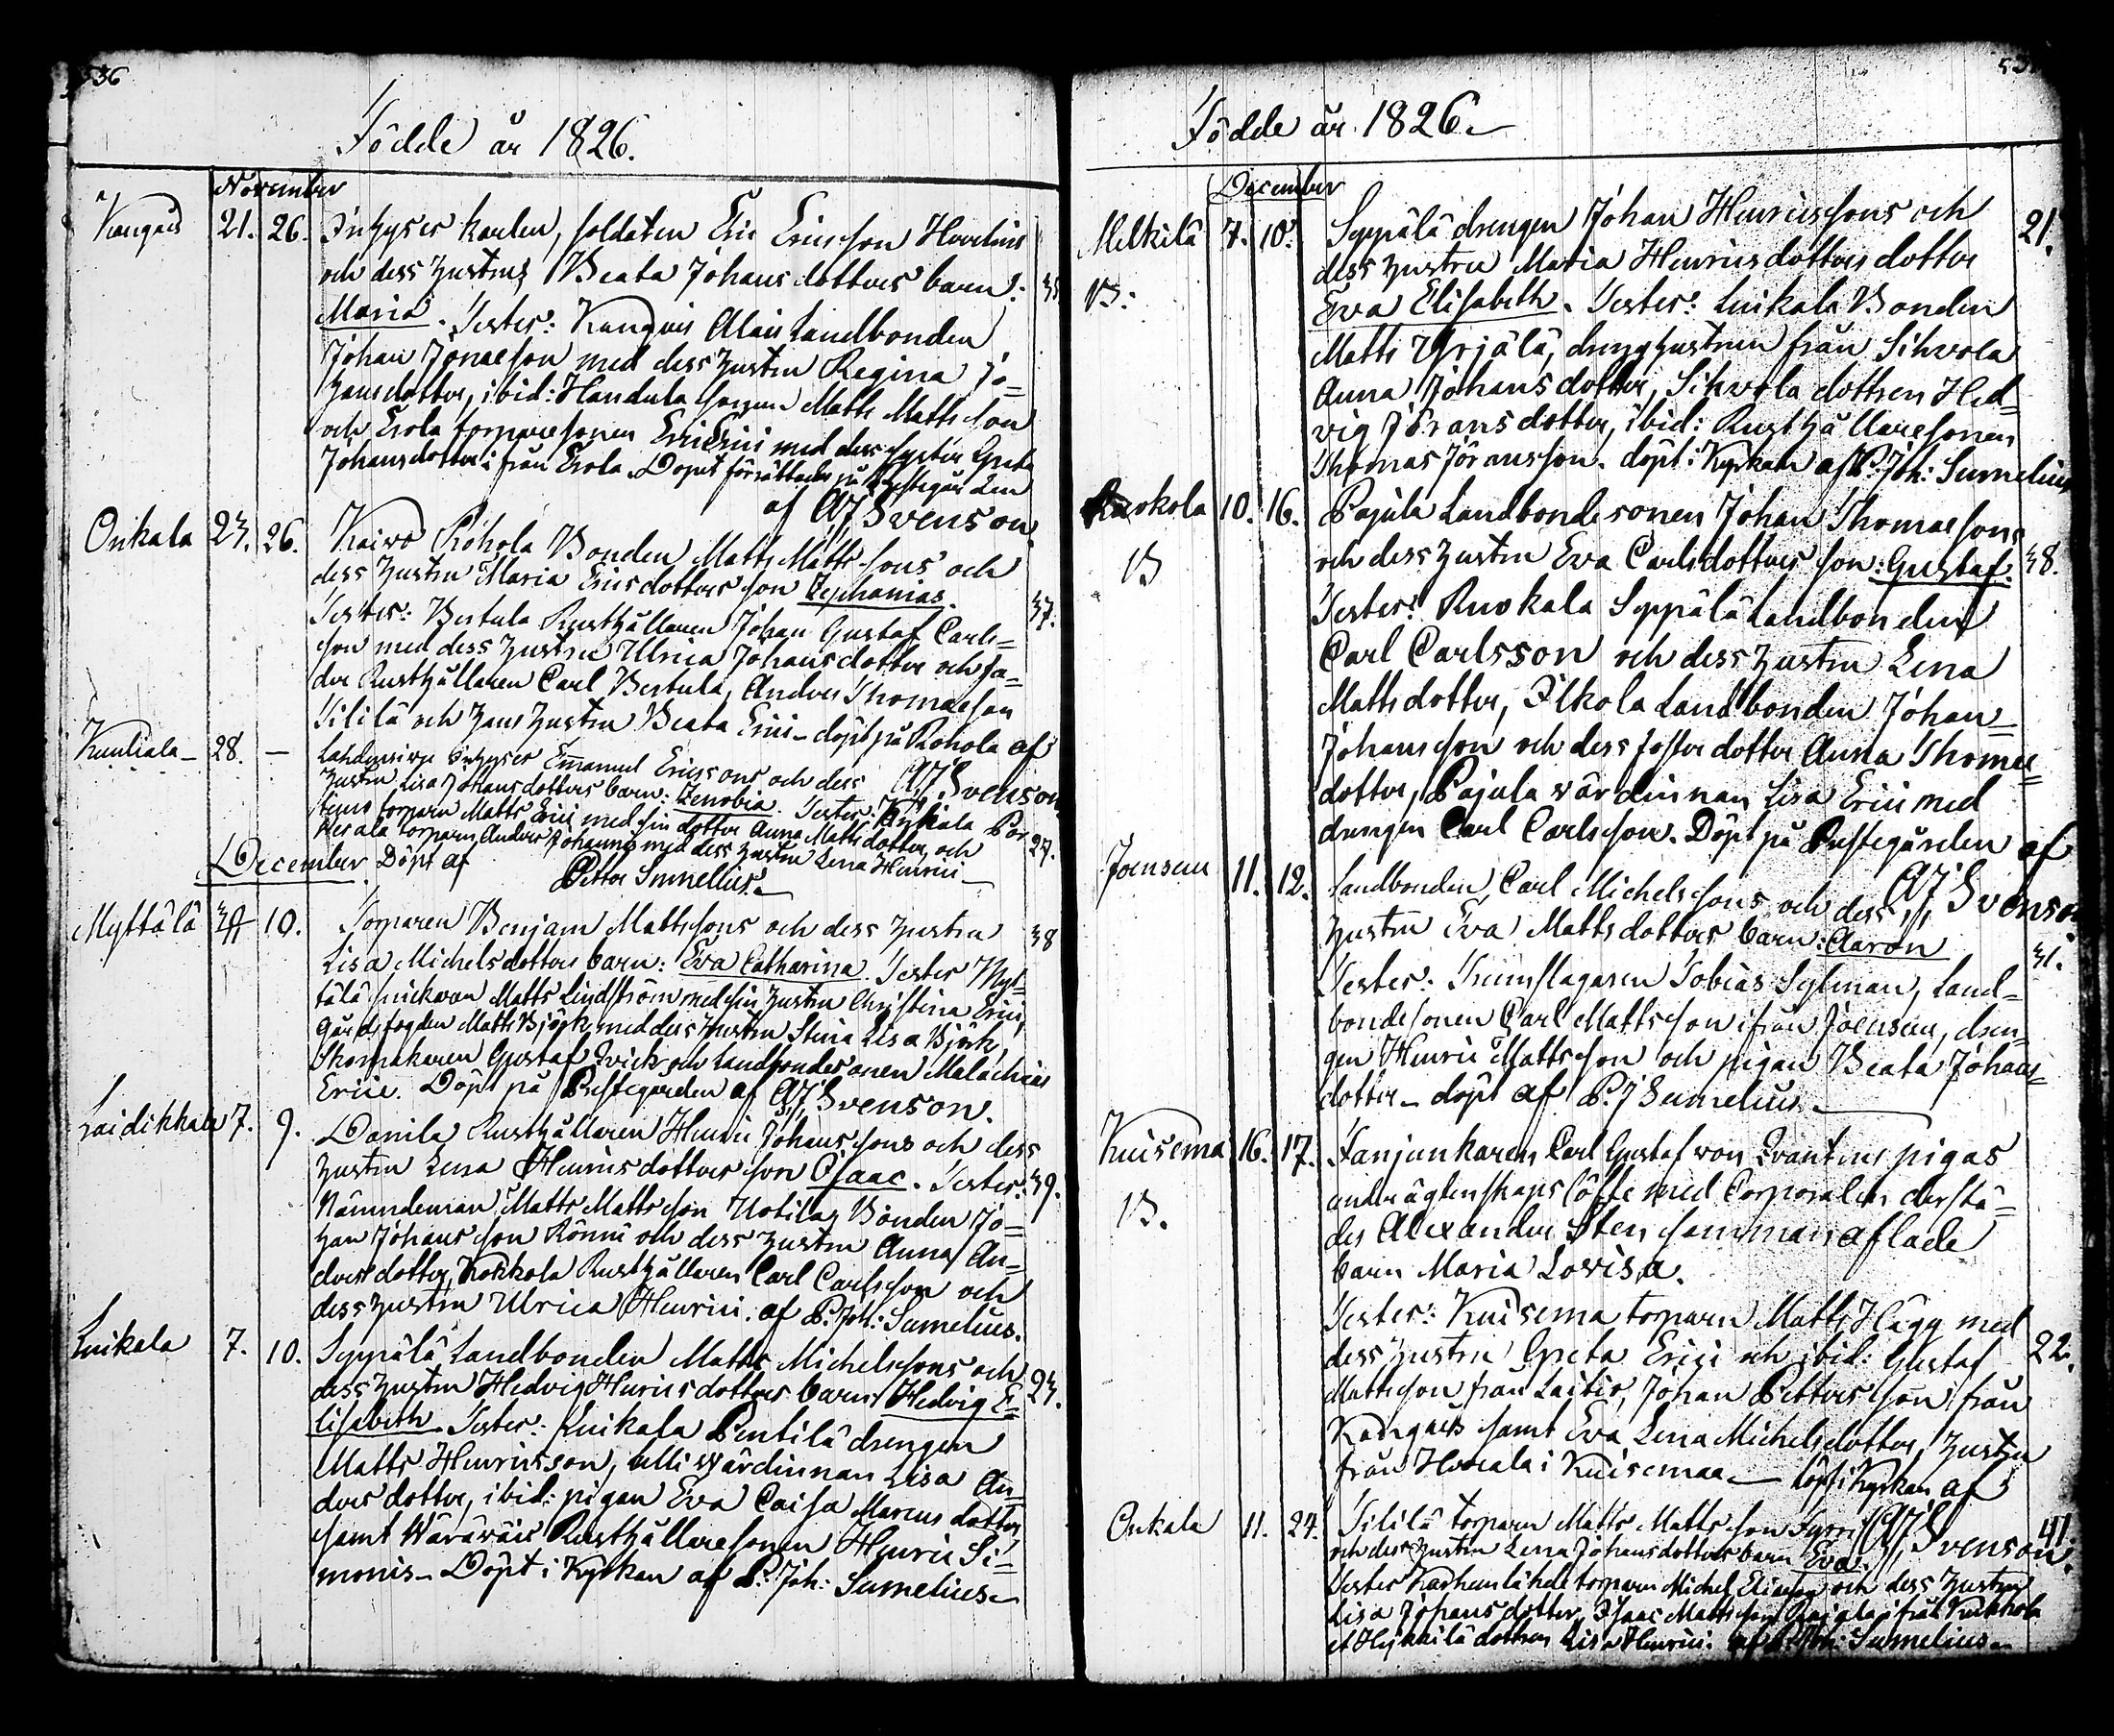 536
Födde år 1826.
November
Kangais 21. 26. Inhyses karlen, soldaten Eric Ericsson
och dess hustrus Beata Johansdotters barn: 35
Maria. Tester: Kangais Alais Landbonden
Johan Jonaeson med dess hustru Regina Jo=
hansdotter, ibid: Handula sonen Matts Mattsson
och Erola torparesonen Eric Erici med dess syster Greta
Johansdotter ifrån Erola. Dopet förrättades på Prestegården
af A J Svenson.
Onkala 23. 26. Kaivo Röhola Bonden Matts Mattssons och
dess hustru Maria Ericsdotters son Zephanias.
Tester: Bertula Rusthållaren Johan Gustaf Carls= 37.
son med dess hustru Ulrica Johansdotter och fa=
der Rusthållaren Carl Bertula, Anders Thomaeson
Tililä och hans hustru Beata Erici - döpt på Rohola af
A J Svenson
Kuuliala - 28. — Inhyses Emanuel Ericssons och dess
hustru Lisa Johansdotters barn: Zenobia. Tester: Kuliala
torparn Matts Erici med sin dotter Anna Mattsdotter, och
torparn Anders Johannis med dess hustru Lena Henrici - 27.
December. Döpt af Petter Sumelius.
Myttälä 10. Torparen Benjam Mattssons och dess hustru 38
Lisa Michelsdotters barn: Eva Catharina. Tester Myt=
tälä snickaren Matts Lindström med sin hustru Christina Erici,
Gårdsfogden Matts Björk med dess hustru Stina Lisa Björk,
Skomakaren Gustaf Qvick och Landbondesonen Malachias
Erici. Döpt på Prestegården af A J Svenson.
Laidikkala 7. 9. Danila Rusthållaren Henric Johanssons och dess
hustru Lena Henricsdotters son Isaac. Tester: 39.
Nämndeman Matts Mattsson Uotila, Bonden Jo=
han Johansson Rönni och dess hustru Anna An=
dersdotter, Kokkola Rusthållaren Carl Carlsson och
dess hustru Ulrica Henrici. af P. Joh: Sumelius.
Luikala 7. 10. Seppälä Landbonden Matts Michelssons och
dess hustru Hedvig Henricsdotters barn: Hedvig E= 23.
lisabeth. Tester: Luikala Pentilä drengen
Matts Henricsson, Ulli wärdinnan Lisa An=
dersdotter, ibid: pigan Eva Caisa Marcusdotter
samt Wäräwäis Rusthållaresonen Henric Si=
monis - Döpt i Kyrkan af P. Joh: Sumelius.
Födde år 1826.
December
Melkilä 7. 10. Seppälä drengen Johan Henricssons och 21.
B: dess hustru Maria Henricsdotters dotter
Eva Elisabeth. Tester: Luikala Bonden
Matts Yrjälä, dreng hustrun från Sihvola
Anna Johansdotter, Sihvola dottren Hed=
vig Jöransdotter, ibid: Rusthållaresonen
Thomas Jöransson. döpt i Kyrkan af P. Joh: Sumelius
10. 16. Pajula Landbondesonen Johan Thomaesons
B och dess hustru Eva Carlsdotters son: Gustaf. 38.
Tester: Ruokala Seppälä Landbonden
Carl Carlsson och dess hustru Lena
Mattsdotter, Ilkola Landbonden Johan
Johansson och dess foster dotter Anna Thomae
dotter, Pajula wärdinnan Lisa Erici med
drengen Carl Carlsson. Döpt på Prestegården af
A J Svenson
Joensuu 11. 12. Landbonden, Carl Michelssons och dess
hustru Eva Mattsdotters barn: Aaron
Tester: Trumslagaren Tobias Sylman, Land= 31.
bondesonen Carl Mattsson ifrån Joensuu, dren=
gen Henric Mattsson och pigan Beata Johans=
dotter - döpt af P. J Sumelius.
Kuisema 16. 17. Fanjunkaren Carl Gustaf von Qvantens pigas
B. under äglenskaps löfte med Corporalen derstä=
des Alexander Sten sammanaflade
barn Maria Lovisa.
Tester: Kuisema torparn Matts Hägg med
dess hustru Greta Erici och ibid: Gustaf 22.
Mattsson från Laitio, Johan Pettersson från
Kangais samt Eva Lena Michelsdotter, hustru
från i Kuisemaa — döpt i Kyrkan af
A J Svenson.
Onkala 11. 24. Tililä torparn Matts Mattsson 41.
och dess hustru Lena Johansdotters barn Eva.
Tester torparn Michel Eliaeson och dess hustru
Lisa Johansdotter, Isaac Mattsson ifrån
et Heikkilä dottren Lisa Henrici. af P. Joh: Sumelius.